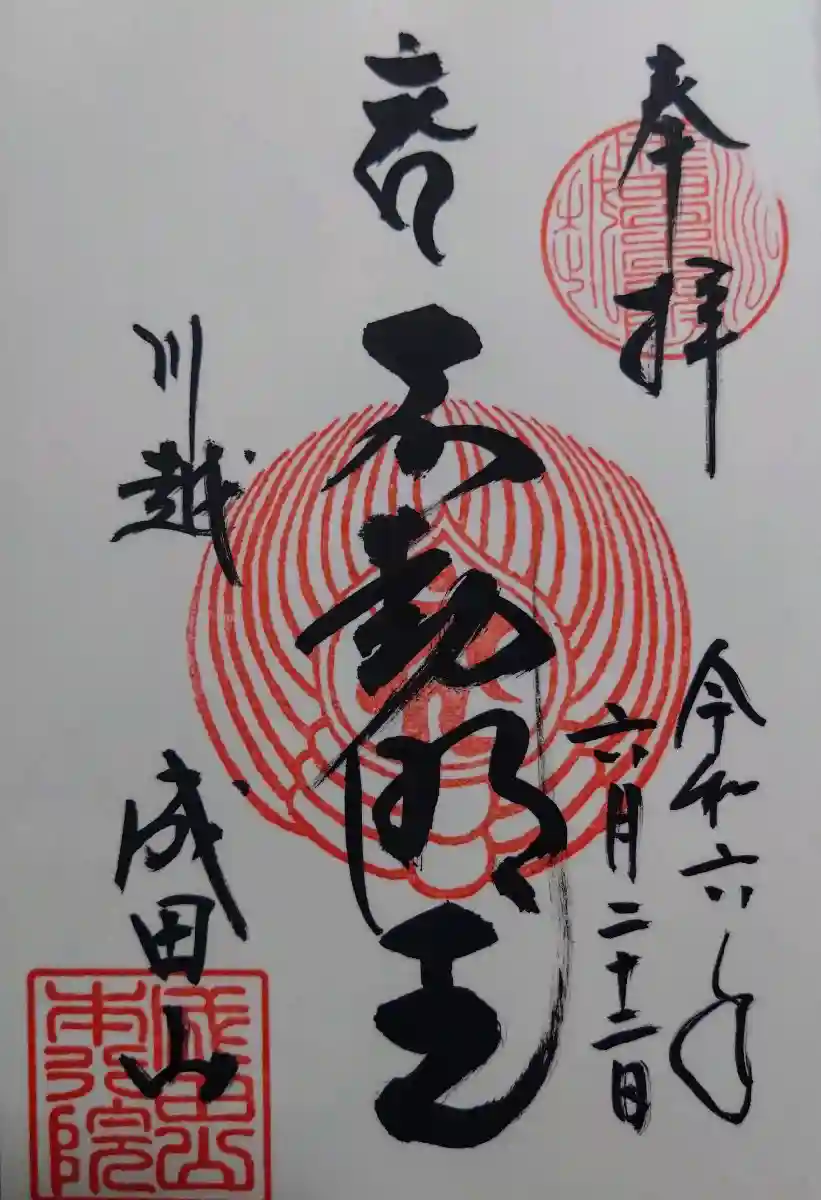 奉拝
令和六年
六月二十二日
不動明王
川越
成田山
成田山
本行院